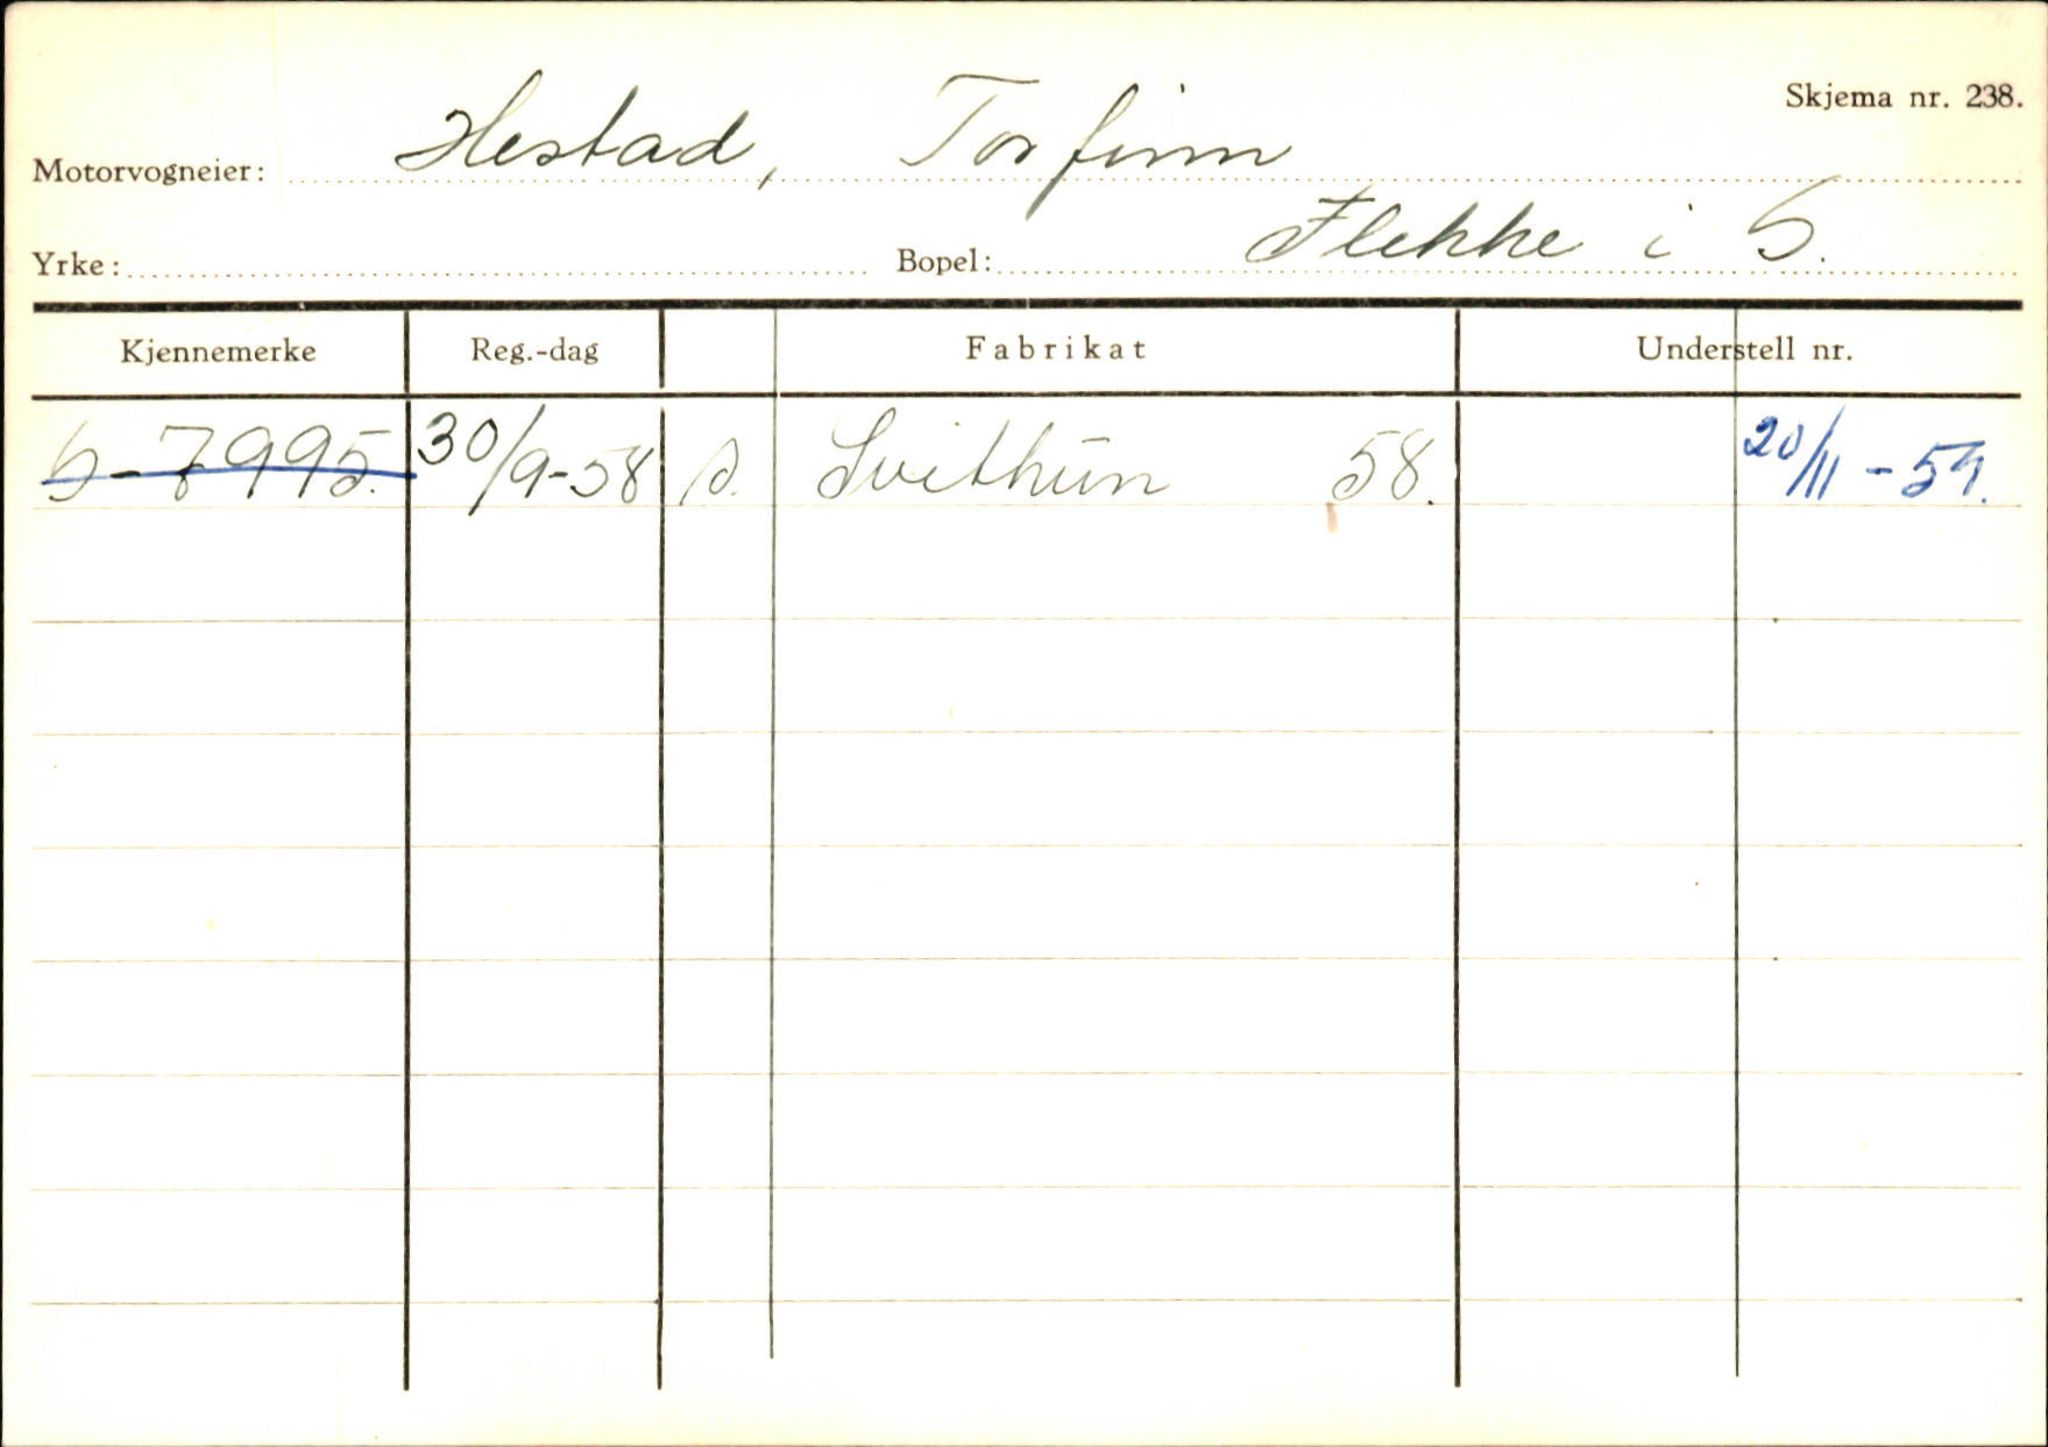 Skjema nr. 238.
Motorvogneier: Hestad, Torfinn
Yrke: Bopel: Flekke i S.
Kjennemerke Reg.-dag Fabrikat Understell nr.
S-7995. 30/9-58 s. Svithun 58. 20/11-59.